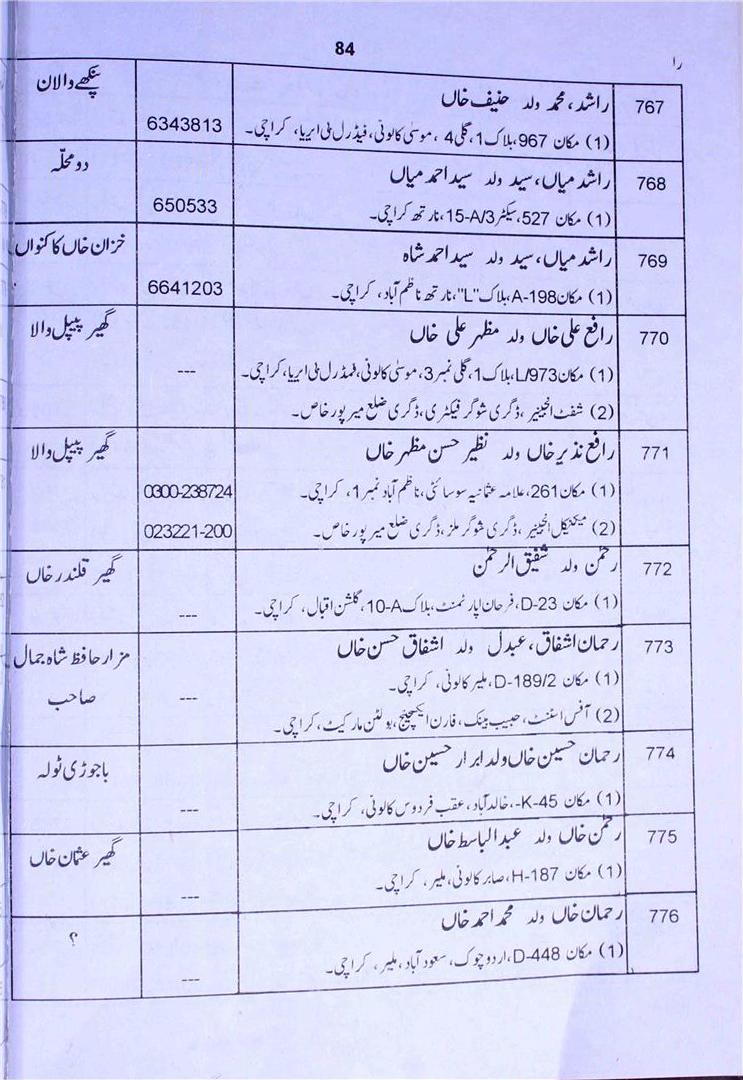 84
را
767
راشد، محمد ولد حنیف خاں
(1) مکان 967، بلاک 1، گلی 4، موسیٰ کالونی، فیڈرل بی ایریا، کراچی۔
6343813
پنکھے والان
768
راشد میاں، سید ولد سید احمد میاں
(1) مکان 527، سیکٹر 15-A/3، نارتھ کراچی۔
650533
دو محلّہ
769
راشد میاں، سید ولد سید احمد شاہ
(1) مکان A-198، بلاک "L"، نارتھ ناظم آباد، کراچی۔
6641203
خزان خاں کا کنواں
770
رافع علی خاں ولد مظہر علی خاں
(1) مکان L/973، بلاک 1، گلی نمبر 3، موسیٰ کالونی، فیڈرل بی ایریا، کراچی۔
(2) شفٹ انجینیر، ڈگری شوگر فیکٹری، ڈگری ضلع میر پور خاص۔
---
گھیر پیپل والا
771
رافع نذیر خاں ولد نظیر حسن مظہر خاں
(1) مکان 261، علامہ عثمانیہ سوسائٹی، ناظم آباد نمبر 1، کراچی۔
(2) میکنیکل انجینیر، ڈگری شوگر ملز، ڈگری ضلع میر پور خاص۔
0300-238724
023221-200
گھیر پیپل والا
772
رحمٰن ولد شفیق الرحمٰن
(1) مکان D-23، فرحان اپارٹمنٹ، بلاک 10-A، گلشن اقبال، کراچی۔
---
گھیر قلندر خاں
773
رحمان اشفاق، عبدل ولد اشفاق حسن خاں
(1) مکان D-189/2، ملیر کالونی، کراچی۔
(2) آفس اسٹنٹ، حبیب بینک، فارن ایکسچینج، بولٹن مارکیٹ، کراچی۔
---
مزار حافظ شاہ جمال
صاحب
774
رحمان حسین خاں ولد ابرار حسین خاں
(1) مکان K-45-، خالد آباد، عقب فردوس کالونی، کراچی۔
---
باجوڑی ٹولہ
775
رحمٰن خاں ولد عبدالباسط خاں
(1) مکان H-187، صابر کالونی، ملیر، کراچی۔
---
گھیر عثمان خاں
776
رحمان خاں ولد محمد احمد خاں
(1) مکان D-448، اردو چوک، سعود آباد، ملیر، کراچی۔
---
؟